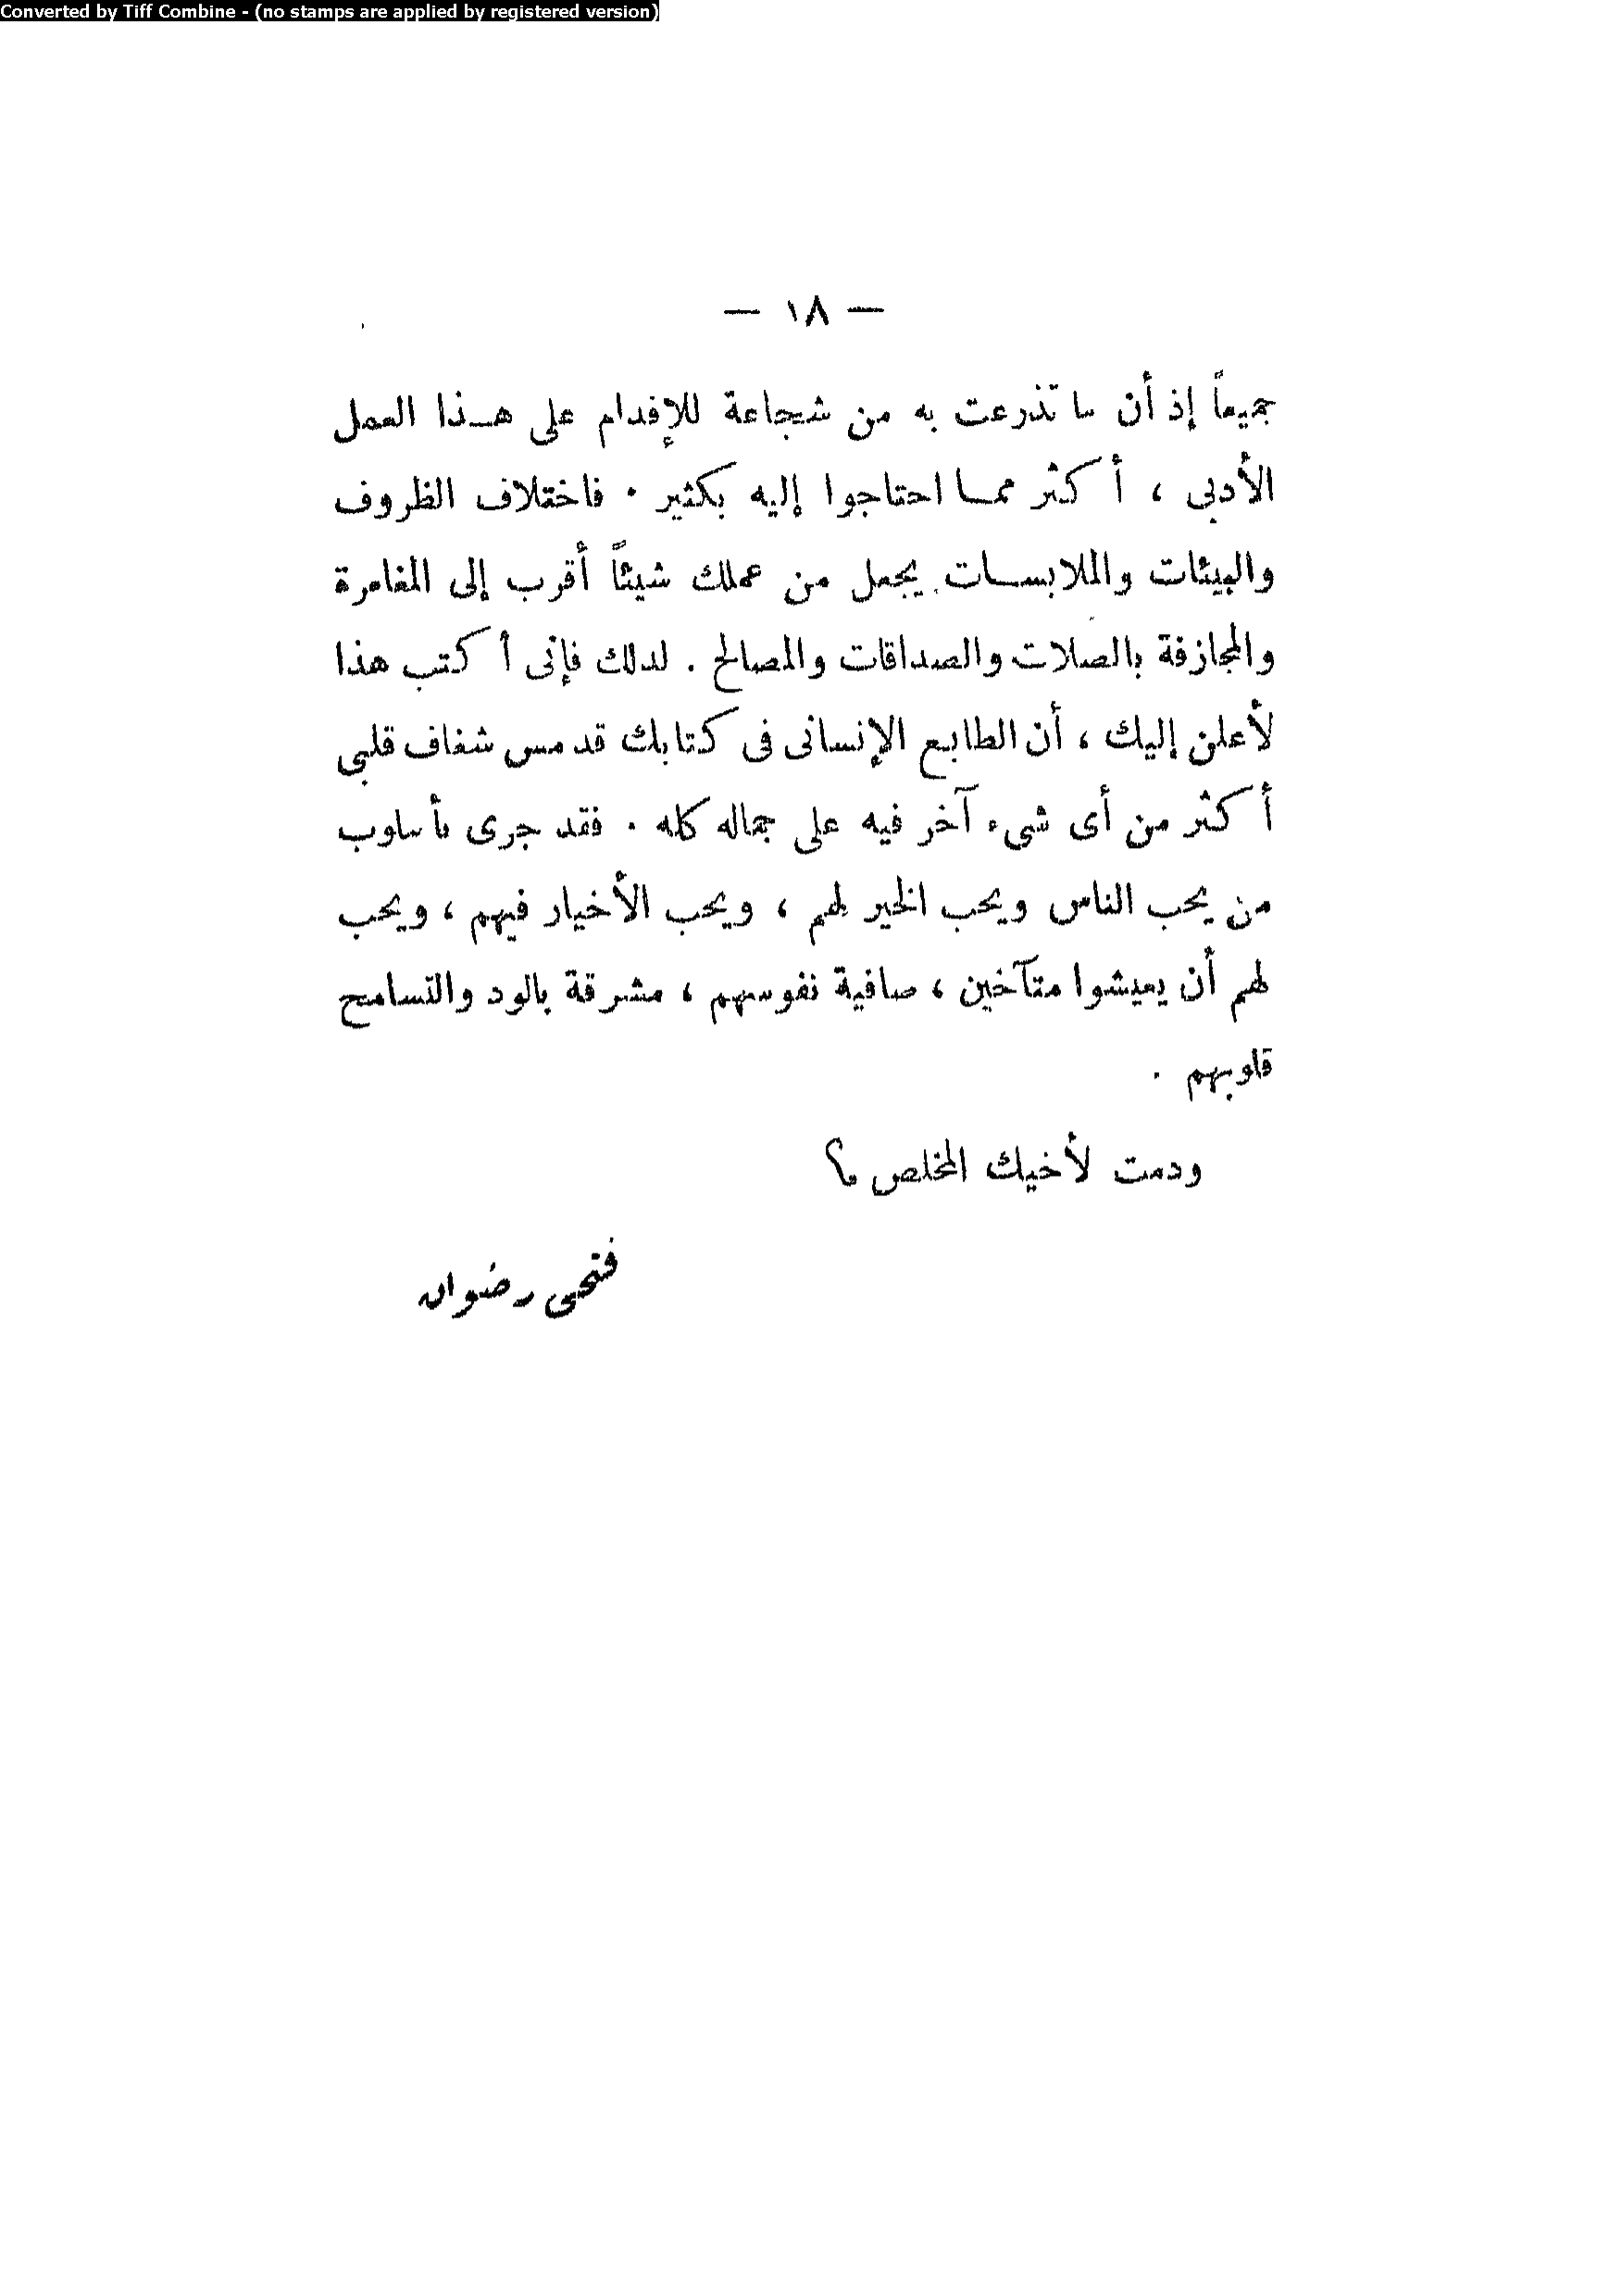 Converted by Tiff Combine - (no stamps are applied by registered version)
— ١٨ —
جميعاً إذ أن ما تذرعت به من شجاعة للإقدام على هـذا العمل
الأدبى ، أكثر ممـا احتاجوا إليه بكثير . فاختلاف الظروف
والبيئات والملابسـات يجعل من عملك شيئاً أقرب إلى المغامرة
والمجازفة بالصلات والصداقات والمصالح . لذلك فإنى أكتب هذا
لأعلن إليك ، أن الطابع الإنسانى فى كتابك قد مس شغاف قلبى
أكثر من أى شىء آخر فيه على جماله كله . فقد جرى بأسلوب
من يحب الناس ويحب الخير لهم ، ويحب الأخيار فيهم ، ويحب
لهم أن يعيشوا متآخين ، صافية نفوسهم ، مشرقة بالود والتسامح
قلوبهم .
ودمت لأخيك المخلص ؟
فتحى رضوان